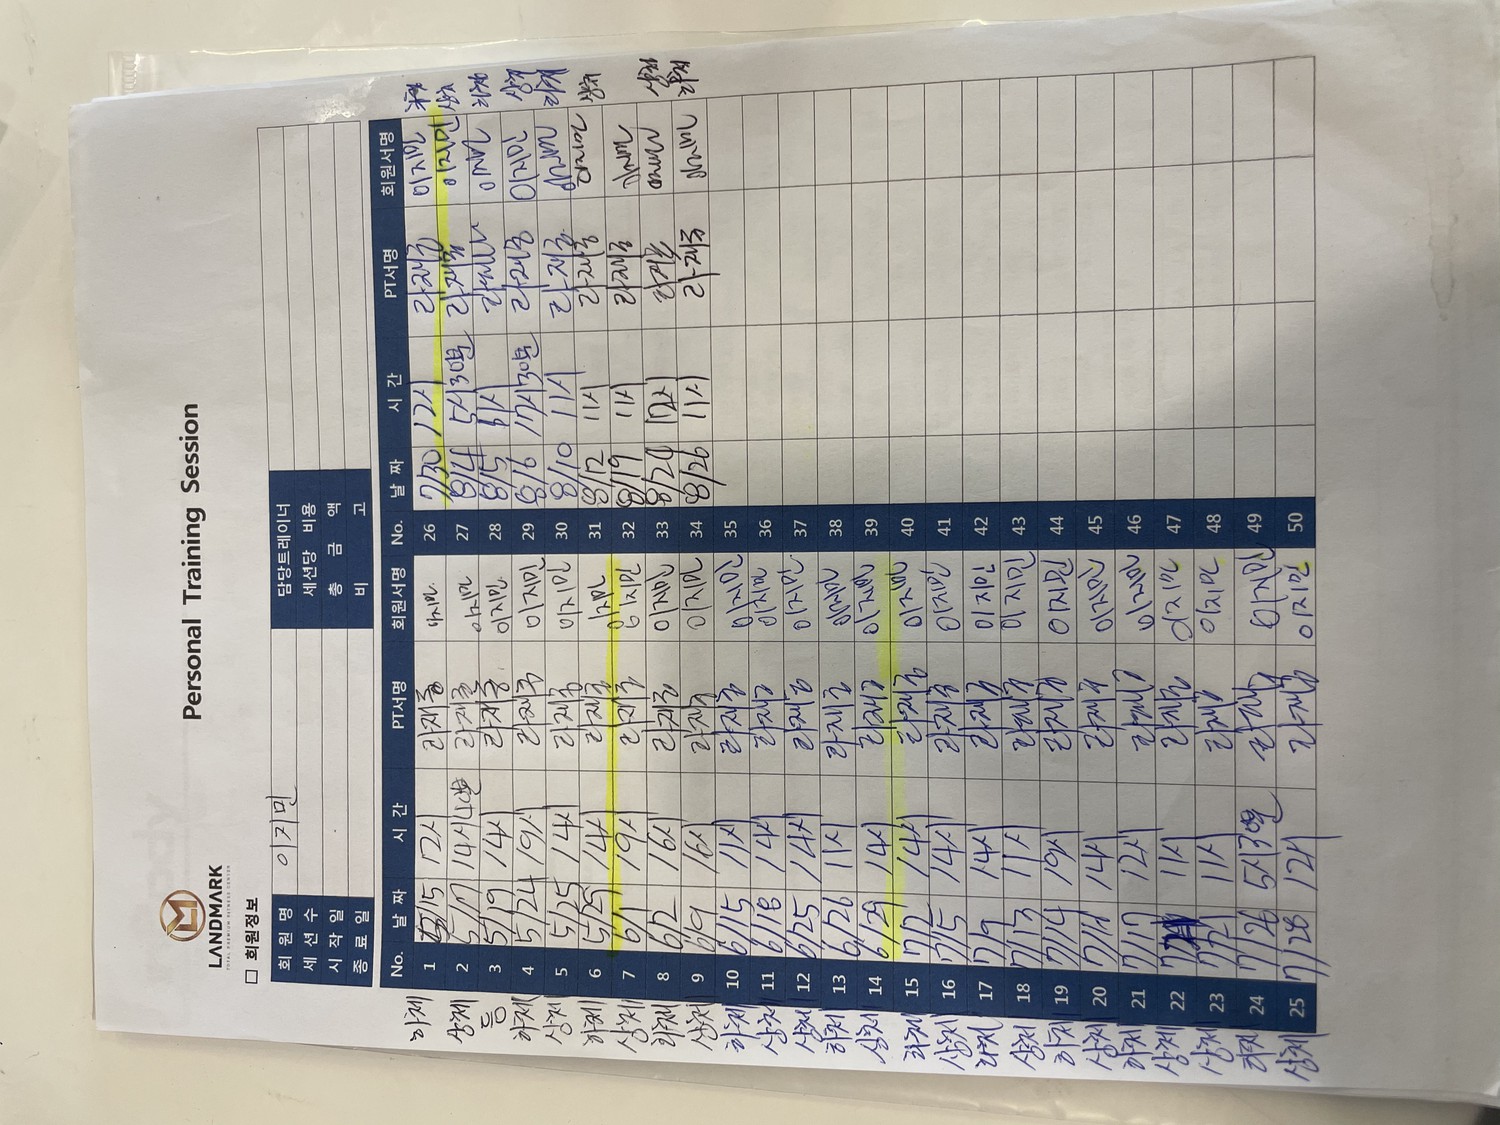 Personal Training Session
LANDMARK
TOTAL PREMIUM FITNESS CENTER
□ 회원정보
회 원 명 이지민 담당트레이너
세 션 수 세션당 비용
시 작 일 총 금 액
종 료 일 비 고
No. 날 짜 시 간 PT서명 회원서명 No. 날 짜 시 간 PT서명 회원서명
하체 1 5/15 12시 라재종 이지민 26 7/30 12시 라재종 이지민 하체
상체 2 5/17 14시40분 라재종 이지민 27 8/4 5시30분 라재종 이지민 상체
등 3 5/19 14시 라재종 이지민 28 8/5 라재종 이지민 하체
하체 4 5/24 19시 라재종 이지민 29 8/6 17시30분 라재종 이지민 상체
상체 5 5/25 14시 라재종 이지민 30 8/10 11시 라재종 이지민 하체
하체 6 5/29 14시 라재종 이지민 31 8/12 11시 라재종 이지민 상체
상체 7 6/1 19시 라재종 이지민 32 8/19 11시 라재종 이지민
하체 8 6/2 16시 라재종 이지민 33 8/24 12시 라재종 이지민 상체
상체 9 6/9 16시 라재종 이지민 34 8/26 11시 라재종 이지민 하체
하체 10 6/15 11시 라재종 이지민 35
상체 11 6/18 14시 라재종 이지민 36
상체 12 6/25 14시 라재종 이지민 37
하체 13 6/26 11시 라재종 이지민 38
상체 14 6/29 14시 라재종 이지민 39
하체 15 7/2 14시 라재종 이지민 40
상체 16 7/5 14시 라재종 이지민 41
하체 17 7/9 14시 라재종 이지민 42
상체 18 7/13 11시 라재종 이지민 43
하체 19 7/14 19시 라재종 이지민 44
상체 20 14시 라재종 이지민 45
하체 21 7/17 12시 라재종 이지민 46
상체 22 11시 라재종 이지민 47
상체 23 7/21 11시 라재종 이지민 48
하체 24 7/26 5시30분 라재종 이지민 49
상체 25 7/28 12시 라재종 이지민 50